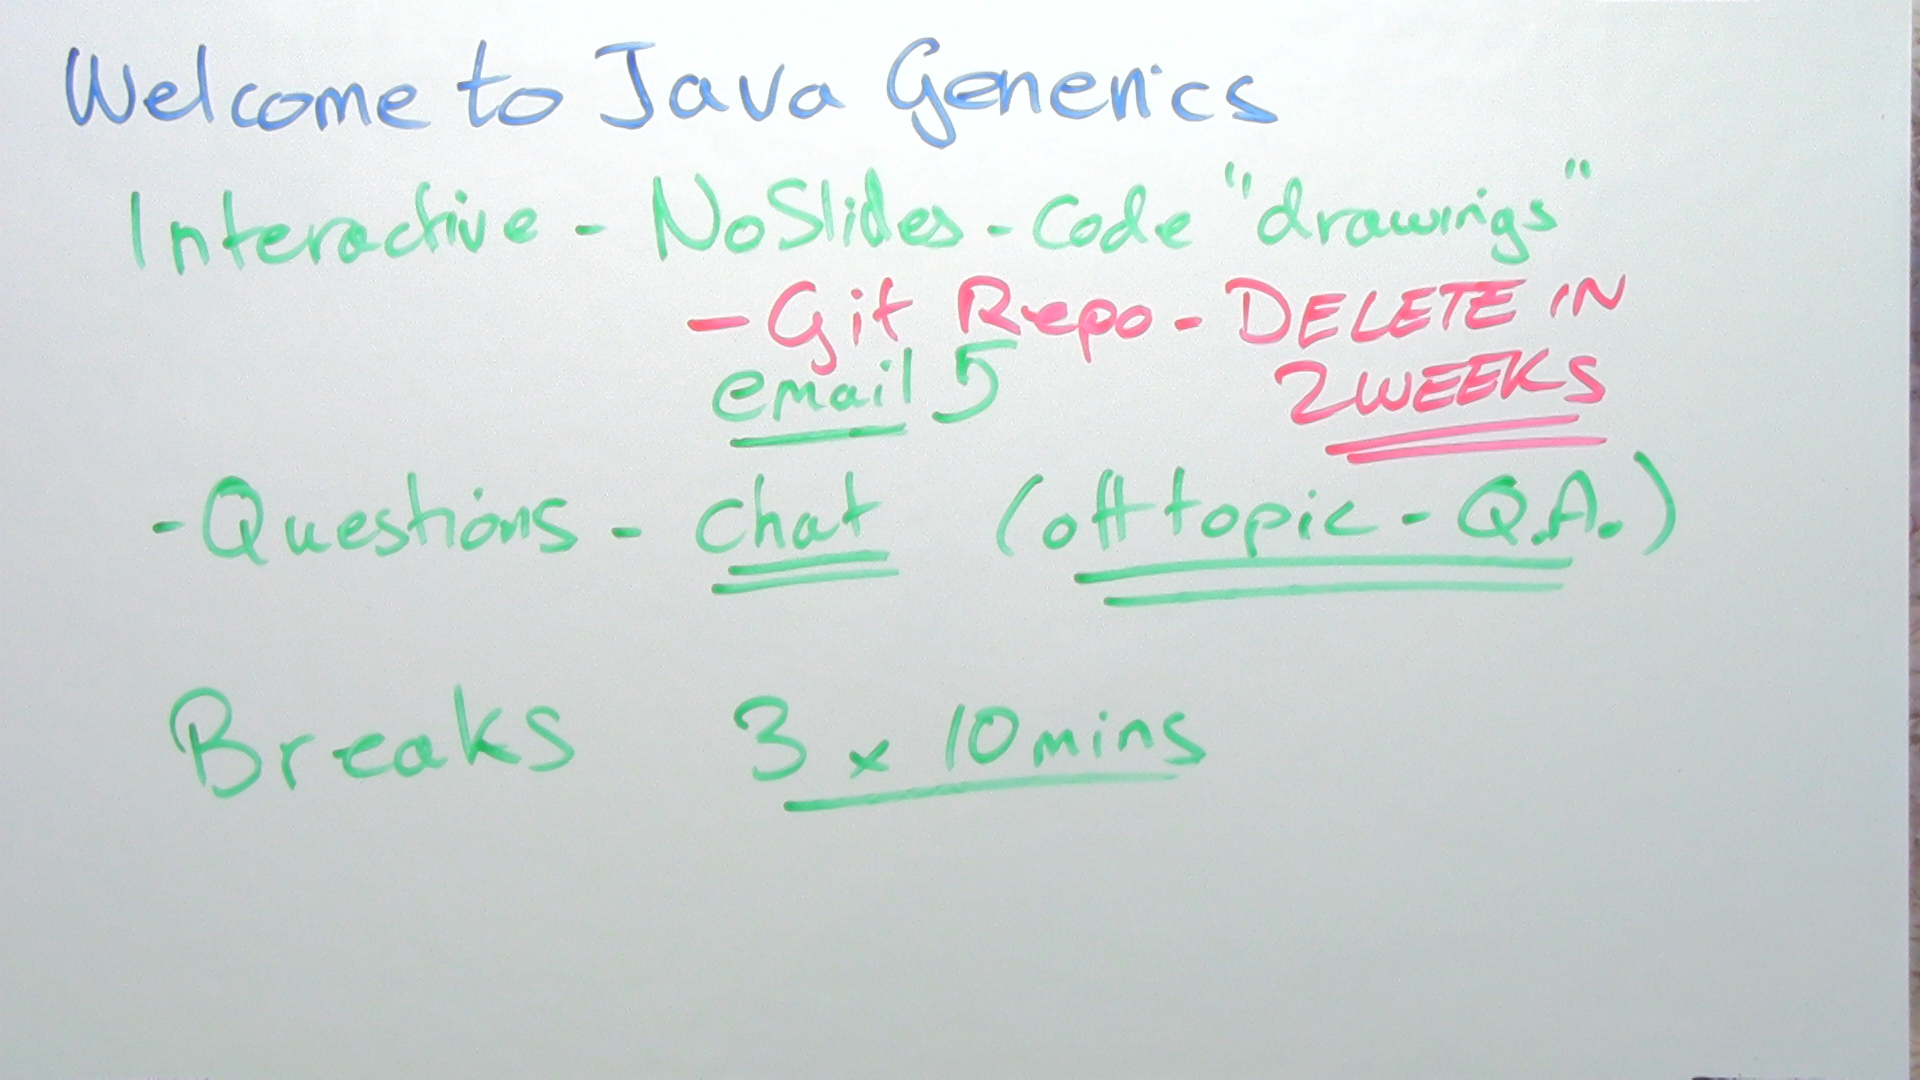 Welcome to Java Generics
Interactive - No Slides - Code "drawings"
- Git Repo - DELETE IN
email 5 2 WEEKS
- Questions - chat (off topic - Q.A.)
Breaks 3 x 10 mins